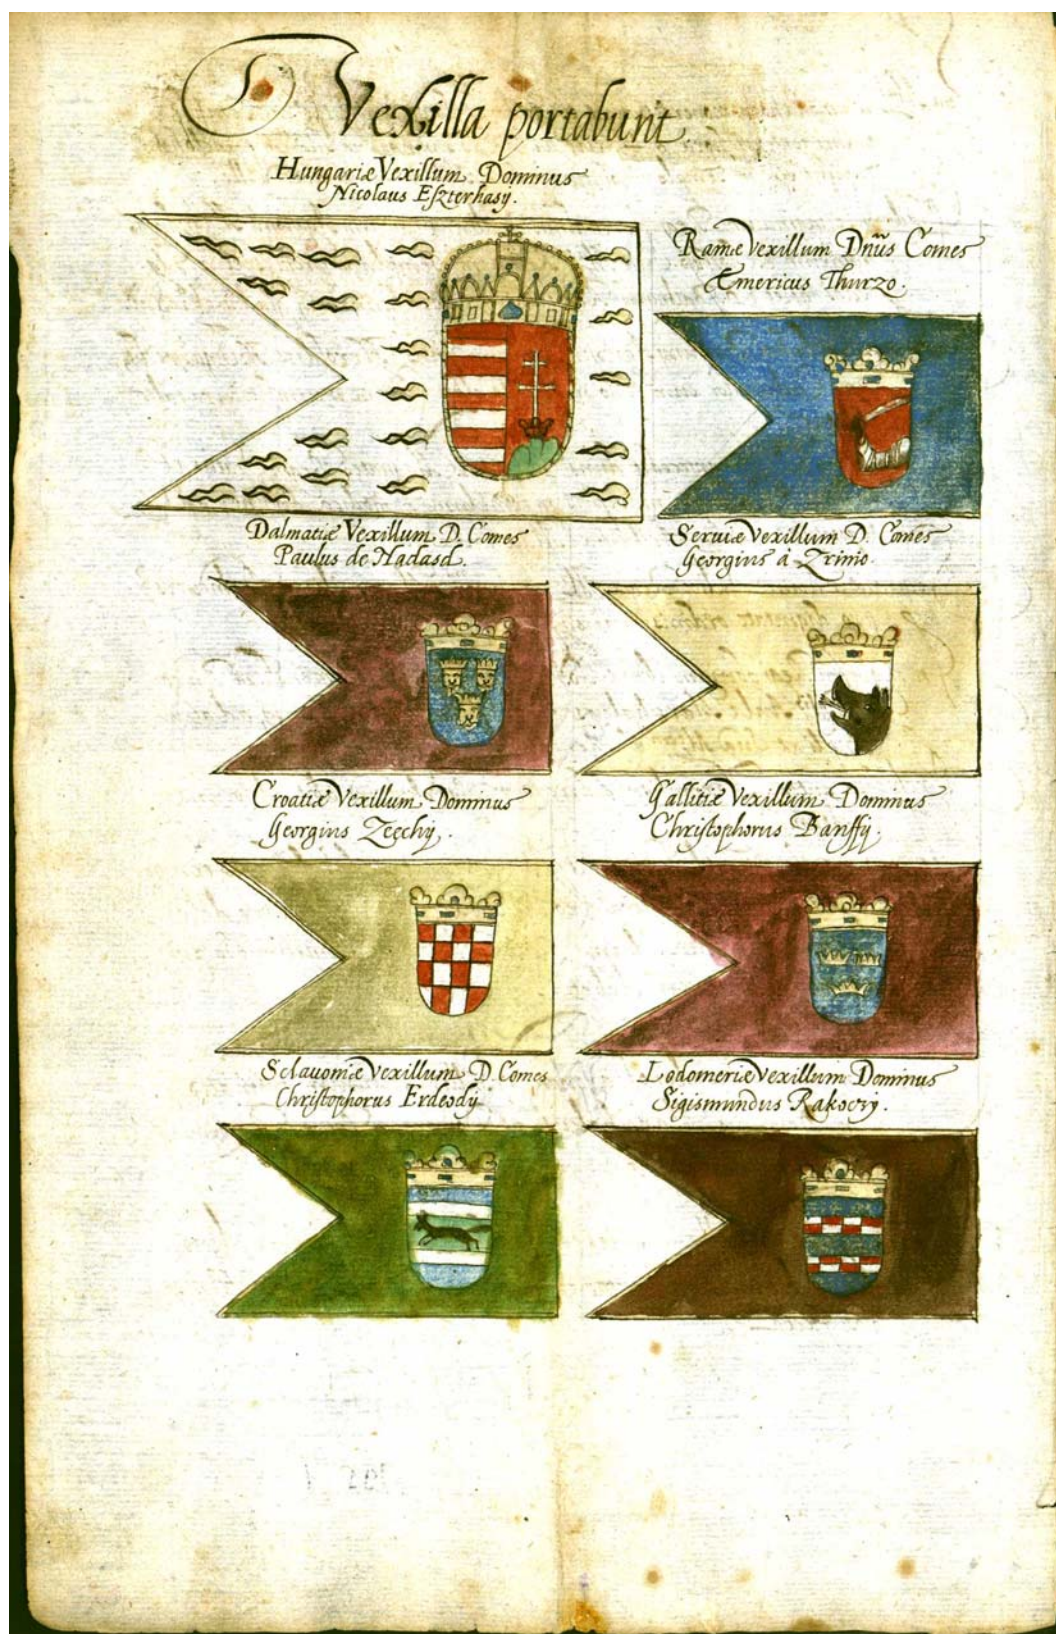 Vexilla portabunt
Hungariæ Vexillum Dominus
Nicolaus Eszterhasy.
Ramæ Vexillum Dnus Comes
Emericus Thurzo.
Dalmatiæ Vexillum D. Comes
Paulus de Nadasd.
Seruiæ Vexillum D. Comes
Georgius à Zrinio.
Croatiæ Vexillum Dominus
Georgius Zeechy.
Gallitiæ Vexillum Dominus
Christophorus Banffy.
Sclauoniæ Vexillum D. Comes
Christophorus Erdeody
Lodomeriæ Vexillum Dominus
Sigismundus Rakoczy.